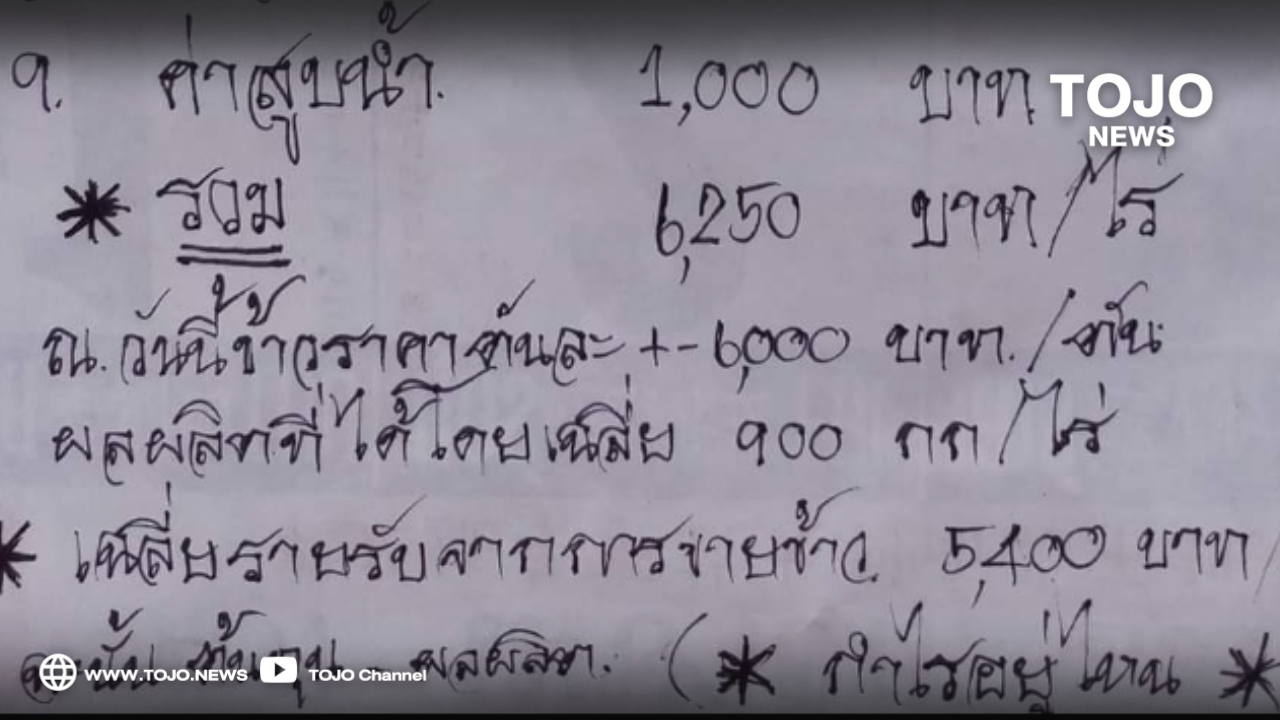 9. ค่าสูบน้ำ. 1,000 บาท
TOJO
NEWS
* รวม 6,250 บาท/ไร่
ณ.วันนี้ข้าวราคาตันละ +- 6,000 บาท./ตัน
ผลผลิตที่ได้โดยเฉลี่ย 900 กก/ไร่
* เฉลี่ยรายรับจากการขายข้าว 5,400 บาท/
ฉะนั้น ต้นทุน - ผลผลิต. (* กำไรอยู่ไหน *
WWW.TOJO.NEWS TOJO Channel